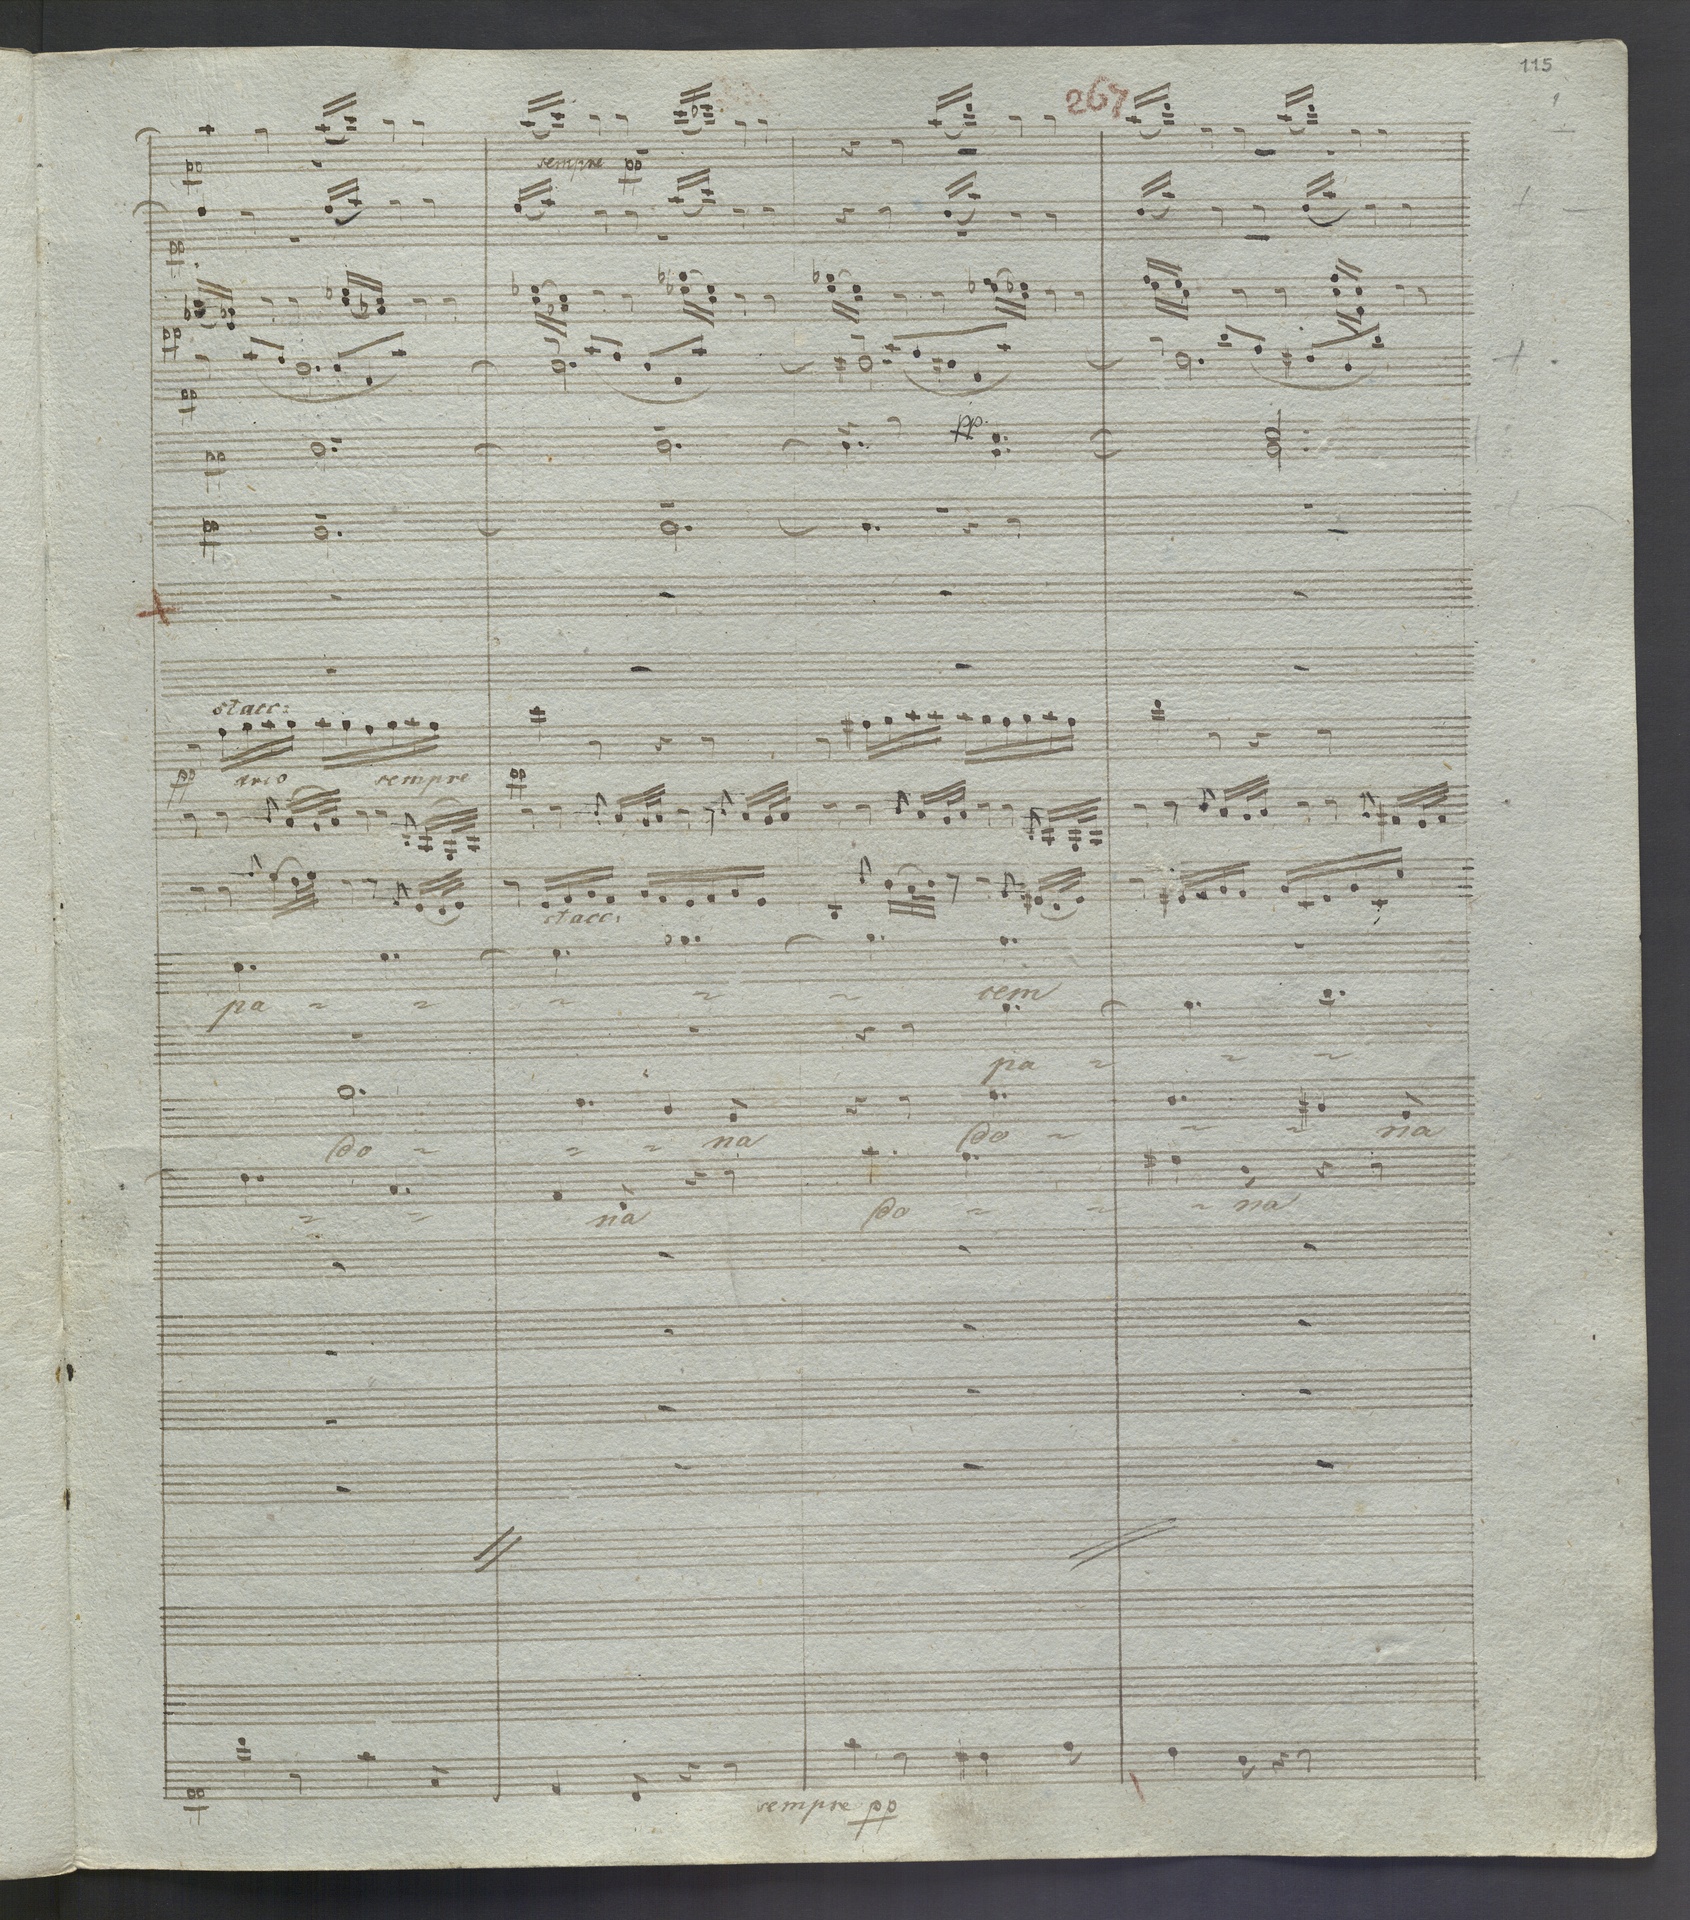 115
267
pp
sempre pp
pp
pp
pp
pp
pp
pp
stacc:
pp trio sempre pp
stacc:
pa sem
pa
Do na Do na
na Do na
pp
sempre pp